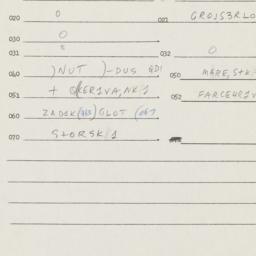 020 0 021 GROJS3RLO
030 0
031 032 0
040 )NUT )-DUS GDI 050 MARE, S+K/
051 + QKER1VA, NK/1 052 FARCEUR1V
060 ZADEK GLOT
070 S+ORSK/1